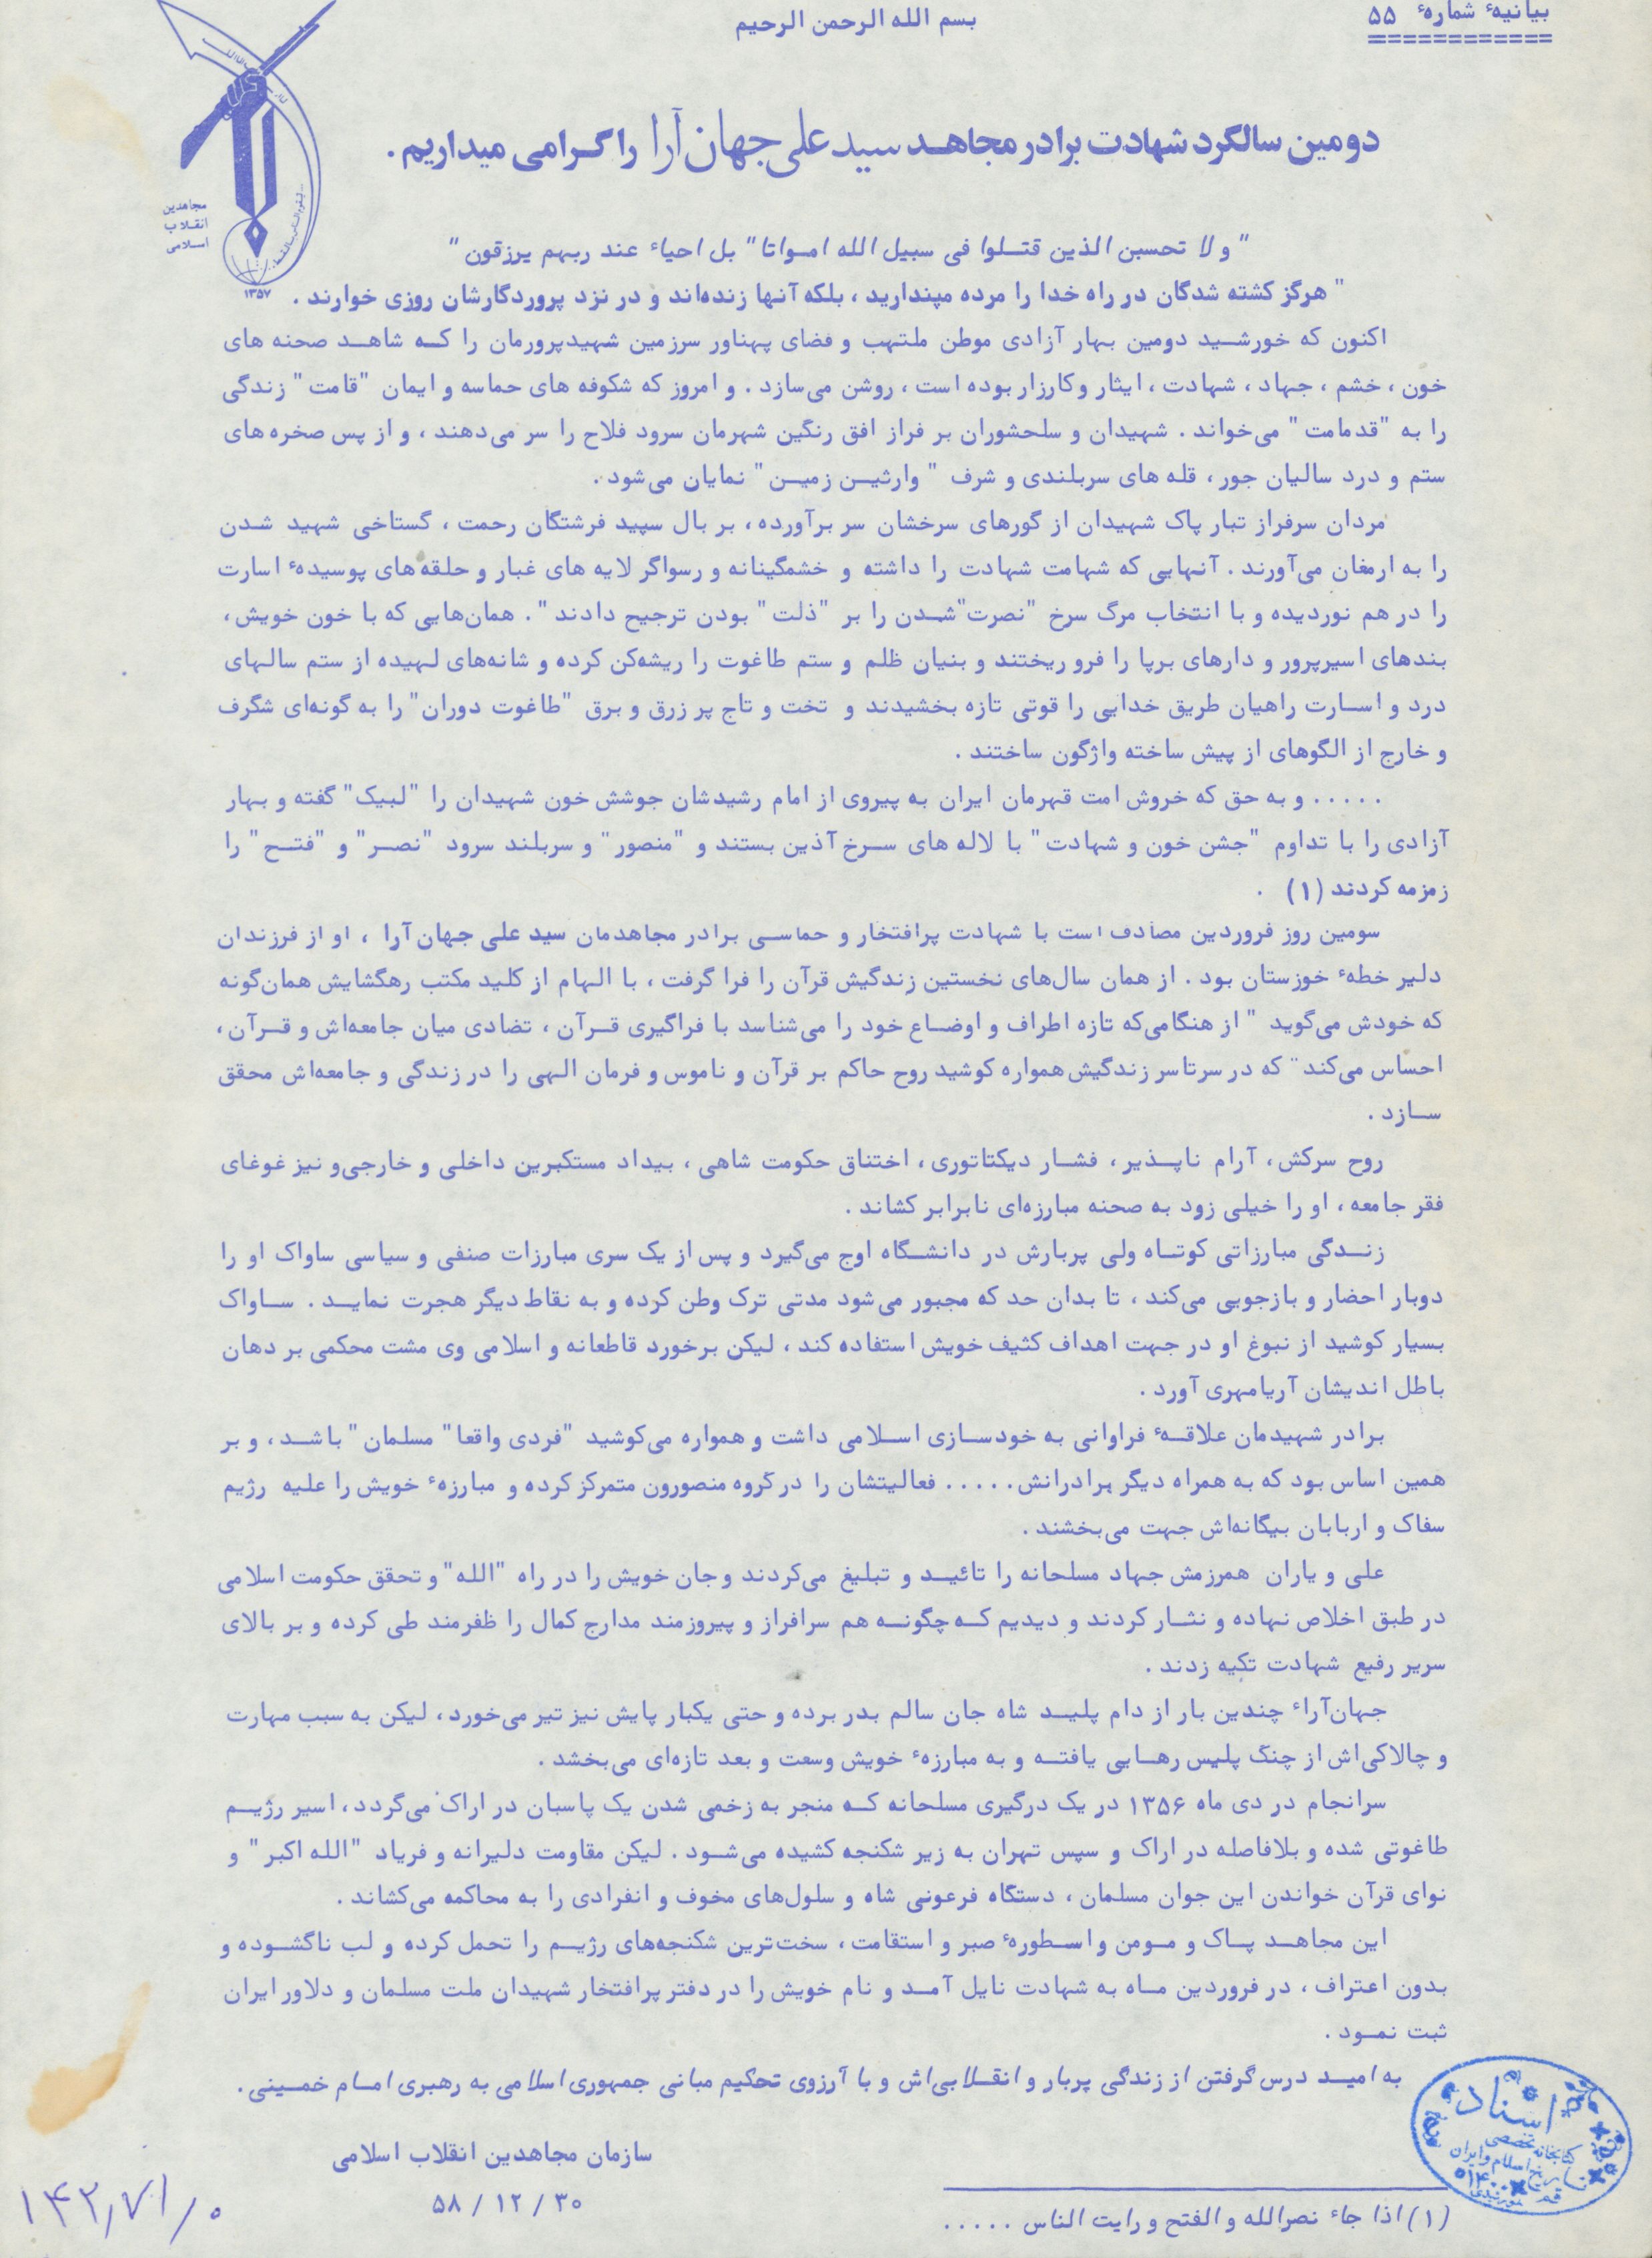 بیانیهٔ شمارهٔ ۵۵
============
بسم الله الرحمن الرحیم
مجاهدین
انقلاب
اسلامی
۱۳۵۷
دومین سالگرد شهادت برادر مجاهد سید علی جهان‌آرا را گرامی میداریم.
"ولا تحسبن الذین قتلوا فی سبیل الله امواتا" بل احیاء عند ربهم یرزقون"
"هرگز کشته شدگان در راه خدا را مرده مپندارید، بلکه آنها زنده‌اند و در نزد پروردگارشان روزی خوارند.
اکنون که خورشید دومین بهار آزادی موطن ملتهب و فضای پهناور سرزمین شهیدپرورمان را که شاهد صحنه های
خون، خشم، جهاد، شهادت، ایثار و کارزار بوده است، روشن می‌سازد. و امروز که شکوفه های حماسه و ایمان "قامت" زندگی
را به "قدمامت" می‌خواند. شهیدان و سلحشوران بر فراز افق رنگین شهرمان سرود فلاح را سر می‌دهند، و از پس صخره های
ستم و درد سالیان جور، قله های سربلندی و شرف "وارثین زمین" نمایان می‌شود.
مردان سرفراز تبار پاک شهیدان از گورهای سرخشان سر برآورده، بر بال سپید فرشتگان رحمت، گستاخی شهید شدن
را به ارمغان می‌آورند. آنهایی که شهامت شهادت را داشته و خشمگینانه و رسواگر لایه های غبار و حلقه‌های پوسیدهٔ اسارت
را در هم نوردیده و با انتخاب مرگ سرخ "نصرت" شدن را بر "ذلت" بودن ترجیح دادند". همان‌هایی که با خون خویش،
بندهای اسیرپرور و دارهای برپا را فرو ریختند و بنیان ظلم و ستم طاغوت را ریشه‌کن کرده و شانه‌های لهیده از ستم سالهای
درد و اسارت راهیان طریق خدایی را قوتی تازه بخشیدند و تخت و تاج پر زرق و برق "طاغوت دوران" را به گونه‌ای شگرف
و خارج از الگوهای از پیش ساخته واژگون ساختند.
..... و به حق که خروش امت قهرمان ایران به پیروی از امام رشیدشان جوشش خون شهیدان را "لبیک" گفته و بهار
آزادی را با تداوم "جشن خون و شهادت" با لاله های سرخ آذین بستند و "منصور" و سربلند سرود "نصر" و "فتح" را
زمزمه کردند (۱) .
سومین روز فروردین مصادف است با شهادت پرافتخار و حماسی برادر مجاهدمان سید علی جهان‌آرا، او از فرزندان
دلیر خطهٔ خوزستان بود. از همان سال‌های نخستین زندگیش قرآن را فرا گرفت، با الهام از کلید مکتب رهگشایش همان‌گونه
که خودش می‌گوید "از هنگامی‌که تازه اطراف و اوضاع خود را می‌شناسد با فراگیری قرآن، تضادی میان جامعه‌اش و قرآن،
احساس می‌کند" که در سرتاسر زندگیش همواره کوشید روح حاکم بر قرآن و ناموس و فرمان الهی را در زندگی و جامعه‌اش محقق
سازد.
روح سرکش، آرام ناپذیر، فشار دیکتاتوری، اختناق حکومت شاهی، بیداد مستکبرین داخلی و خارجی و نیز غوغای
فقر جامعه، او را خیلی زود به صحنه مبارزه‌ای نابرابر کشاند.
زندگی مبارزاتی کوتاه ولی پربارش در دانشگاه اوج می‌گیرد و پس از یک سری مبارزات صنفی و سیاسی ساواک او را
دوبار احضار و بازجویی می‌کند، تا بدان حد که مجبور می‌شود مدتی ترک وطن کرده و به نقاط دیگر هجرت نماید. ساواک
بسیار کوشید از نبوغ او در جهت اهداف کثیف خویش استفاده کند، لیکن برخورد قاطعانه و اسلامی وی مشت محکمی بر دهان
باطل اندیشان آریامهری آورد.
برادر شهیدمان علاقهٔ فراوانی به خودسازی اسلامی داشت و همواره می‌کوشید "فردی واقعا" مسلمان" باشد، و بر
همین اساس بود که به همراه دیگر برادرانش..... فعالیتشان را در گروه منصورون متمرکز کرده و مبارزهٔ خویش را علیه رژیم
سفاک و اربابان بیگانه‌اش جهت می‌بخشند.
علی و یاران همرزمش جهاد مسلحانه را تائید و تبلیغ می‌کردند و جان خویش را در راه "الله" و تحقق حکومت اسلامی
در طبق اخلاص نهاده و نثار کردند و دیدیم که چگونه هم سرافراز و پیروزمند مدارج کمال را ظفرمند طی کرده و بر بالای
سریر رفیع شهادت تکیه زدند.
جهان‌آراء چندین بار از دام پلید شاه جان سالم بدر برده و حتی یکبار پایش نیز تیر می‌خورد، لیکن به سبب مهارت
و چالاکی‌اش از چنگ پلیس رهایی یافته و به مبارزهٔ خویش وسعت و بعد تازه‌ای می‌بخشد.
سرانجام در دی ماه ۱۳۵۶ در یک درگیری مسلحانه که منجر به زخمی شدن یک پاسبان در اراک می‌گردد، اسیر رژیم
طاغوتی شده و بلافاصله در اراک و سپس تهران به زیر شکنجه کشیده می‌شود. لیکن مقاومت دلیرانه و فریاد "الله اکبر" و
نوای قرآن خواندن این جوان مسلمان، دستگاه فرعونی شاه و سلول‌های مخوف و انفرادی را به محاکمه می‌کشاند.
این مجاهد پاک و مومن و اسطورهٔ صبر و استقامت، سخت‌ترین شکنجه‌های رژیم را تحمل کرده و لب ناگشوده و
بدون اعتراف، در فروردین ماه به شهادت نایل آمد و نام خویش را در دفتر پرافتخار شهیدان ملت مسلمان و دلاور ایران
ثبت نمود.
به امید درس گرفتن از زندگی پربار و انقلابی‌اش و با آرزوی تحکیم مبانی جمهوری اسلامی به رهبری امام خمینی.
سازمان مجاهدین انقلاب اسلامی
۵۸ / ۱۲ / ۳۰
(۱) اذا جاء نصرالله و الفتح و رایت الناس .....
اسناد
کتابخانه تخصصی
تاریخ اسلام و ایران